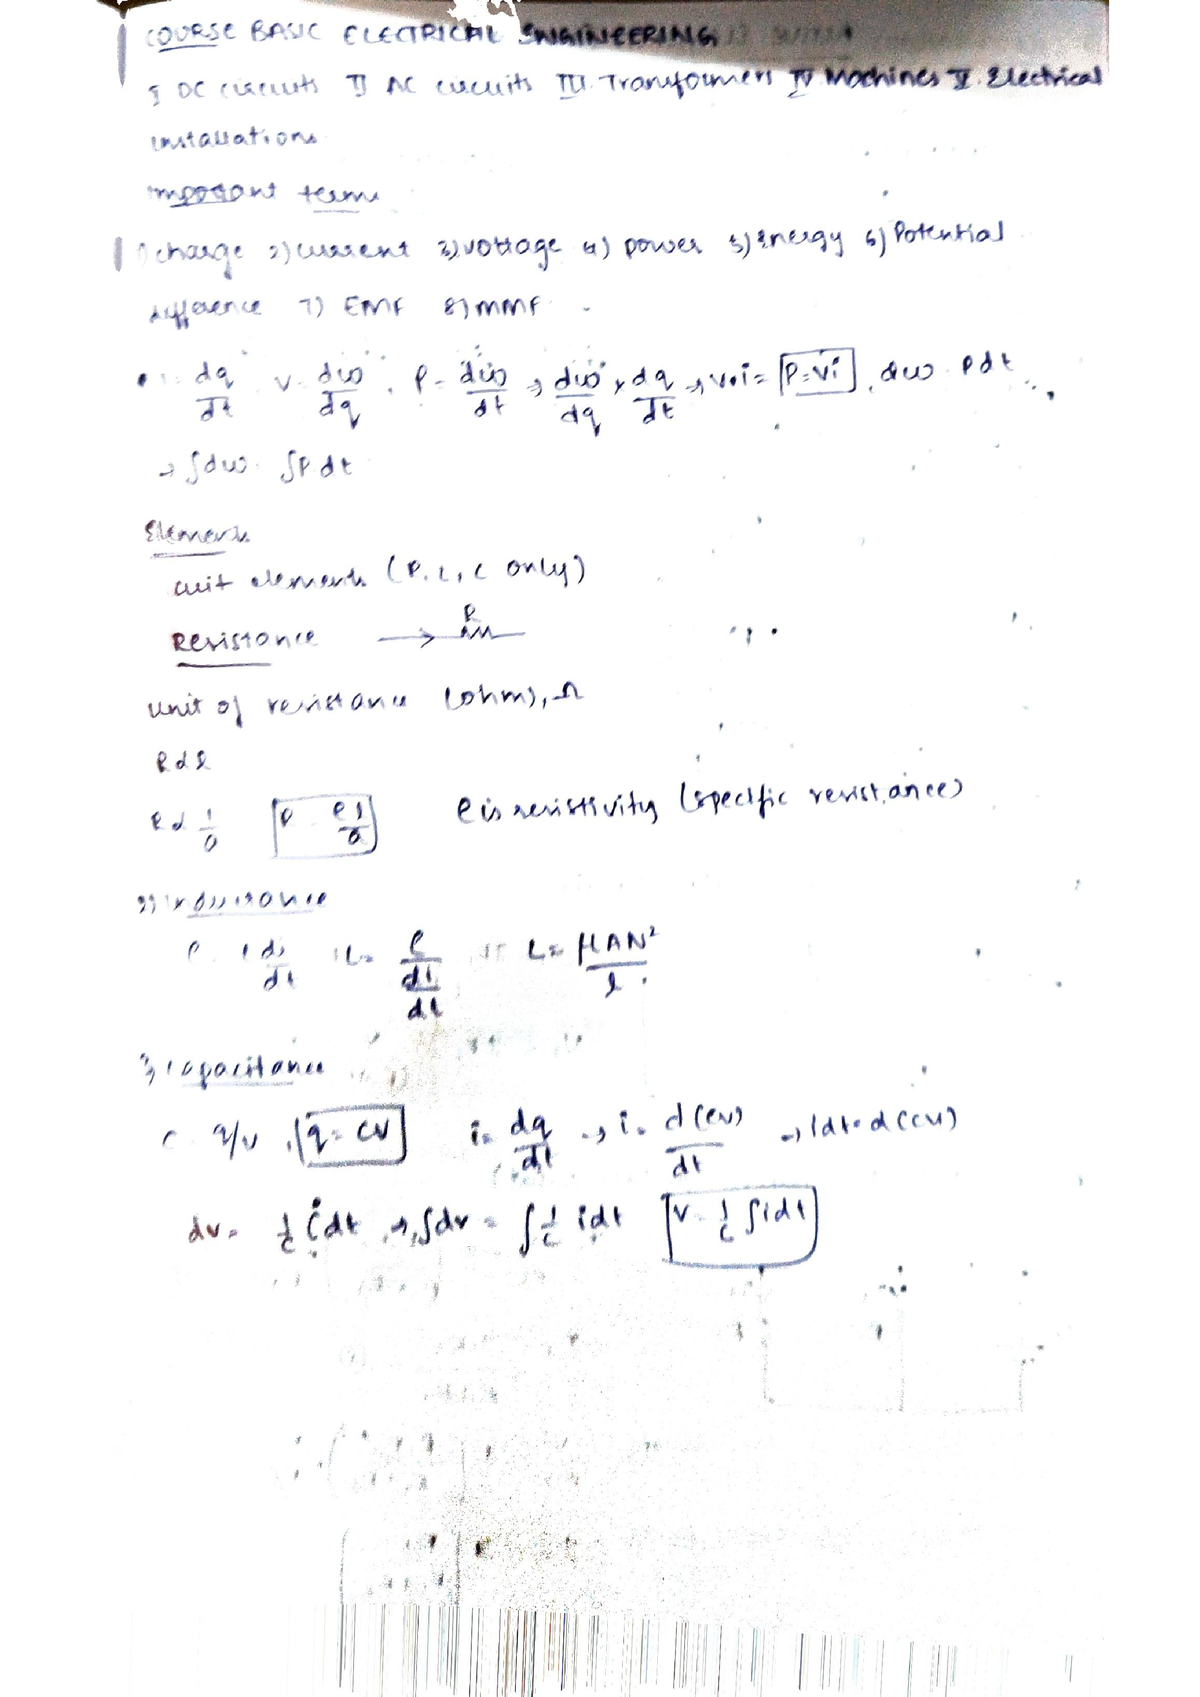 COURSE BASIC ELECTRICAL ENGINEERING
I DC circuits II AC circuits III. Transformers IV Machines V Electrical
installations
important terms
1) charge 2) current 3) voltage 4) power 5) Energy 6) Potential
difference 7) EMF 8) MMF
i = dq/dt V = dw/dq, P = dw/dt → dw/dq × dq/dt → v.i = P=Vi, dw = Pdt
→ ∫dw = ∫P.dt
Elements
cuit elements (R, L, C only)
Resistance R
unit of resistance (ohm), Ω
R α l
R α 1/a R = ρl/a ρ is resistivity (specific resistance)
2) inductance
e = L di/dt L = e/(di/dt) L = μAN²/l
3) capacitance
C = q/v, q = CV i = dq/dt → i = d(cv)/dt → idt = d(cv)
dv = 1/c i dt → ∫dv = ∫1/c idt V = 1/c ∫idt